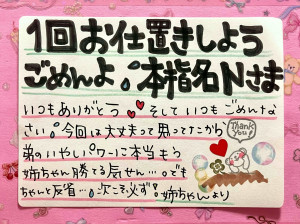 1回お仕置きしよう
ごめんよ💧本指名Nさま
いつもありがとう そしていつもごめんな
さい💧今回は大丈夫って思ってたから
Thank You!
弟のいやしパワーに本当もう
姉ちゃん勝てる気せん…💧でも
ちゃんと反省…💧次こそ必ず!姉ちゃんより